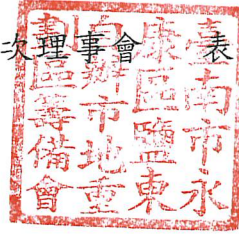 次理事會 表
臺南市永
康區鹽東
自辦市地重
劃區籌備會